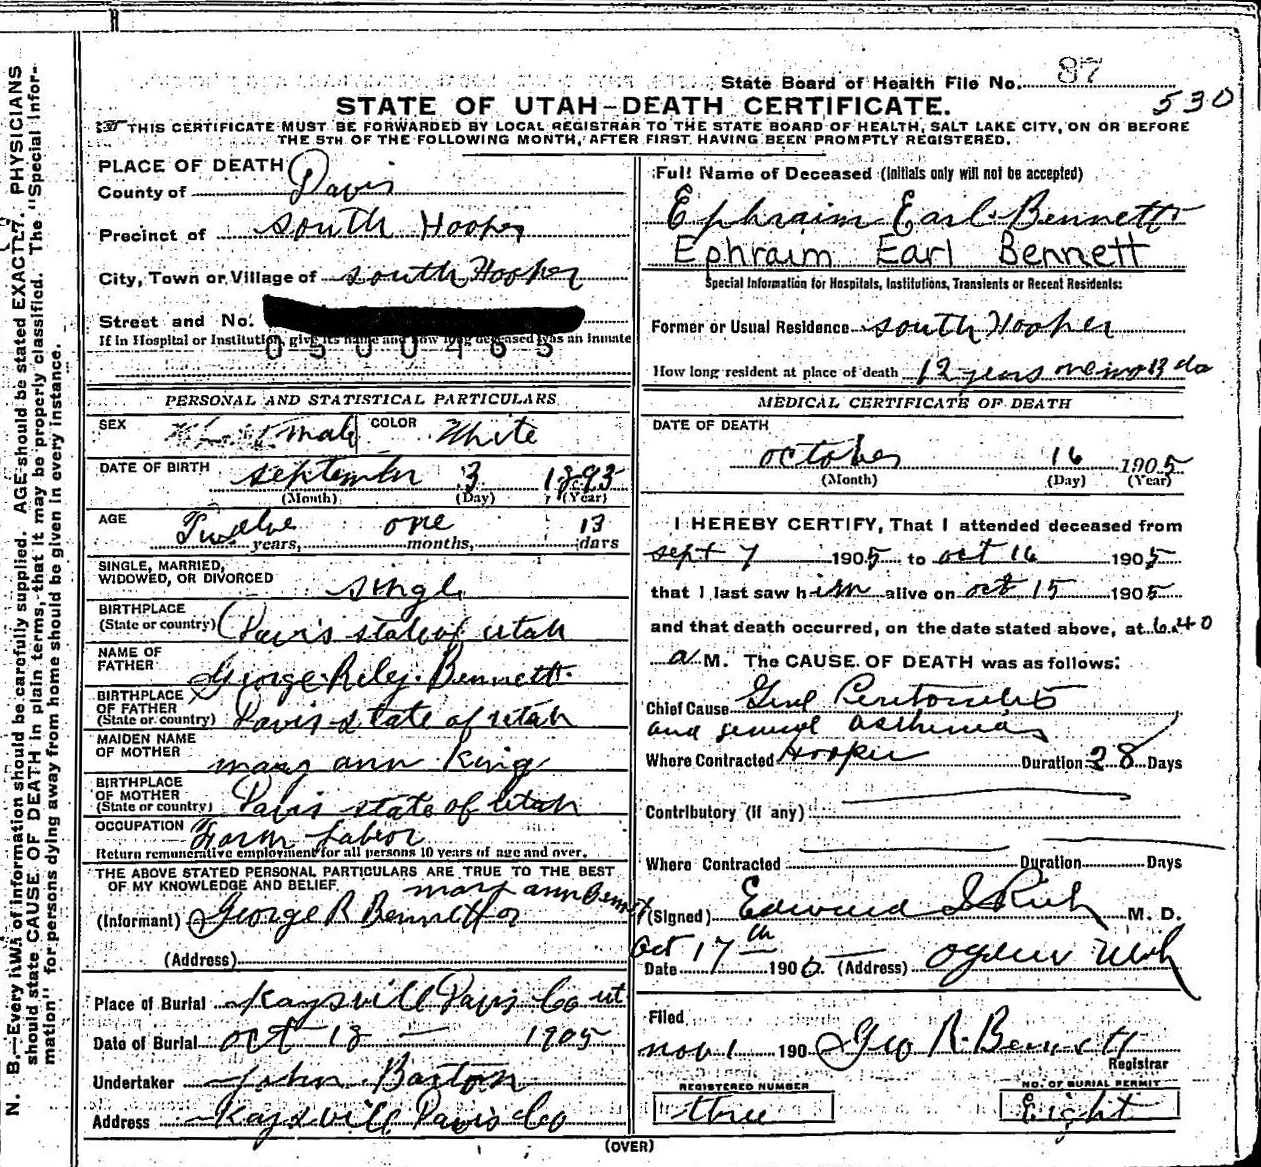 State Board of Health File No. 87
530
STATE OF UTAH—DEATH CERTIFICATE.
THIS CERTIFICATE MUST BE FORWARDED BY LOCAL REGISTRAR TO THE STATE BOARD OF HEALTH, SALT LAKE CITY, ON OR BEFORE
THE 5TH OF THE FOLLOWING MONTH, AFTER FIRST HAVING BEEN PROMPTLY REGISTERED.
N. B.—Every item of information should be carefully supplied. AGE should be stated EXACTLY. PHYSICIANS
should state CAUSE OF DEATH in plain terms, that it may be properly classified. The "Special Infor-
mation" for persons dying away from home should be given in every instance.
PLACE OF DEATH
County of Davis
Precinct of south Hooper
City, Town or Village of south Hooper
Street and No.
If in Hospital or Institution, give its name and how long deceased was an inmate
0500465
PERSONAL AND STATISTICAL PARTICULARS
SEX male COLOR White
DATE OF BIRTH september 3 1893
(Month) (Day) (Year)
AGE Twelve years, one months, 13 days
SINGLE, MARRIED,
WIDOWED, OR DIVORCED single
BIRTHPLACE
(State or country) Davis state of utah
NAME OF
FATHER George Riley Bennett
BIRTHPLACE
OF FATHER
(State or country) Davis state of utah
MAIDEN NAME
OF MOTHER mary ann King
BIRTHPLACE
OF MOTHER
(State or country) Davis state of Utah
OCCUPATION Farm Labior
Return remunerative employment for all persons 10 years of age and over.
THE ABOVE STATED PERSONAL PARTICULARS ARE TRUE TO THE BEST
OF MY KNOWLEDGE AND BELIEF
mary ann Bennett
(Informant) George R Bennett
(Address)
Place of Burial Kaysvill Davis Co ut
Date of Burial oct 18 — 1905
Undertaker John Barton
Address Kaysvill Davis Co
Full Name of Deceased (Initials only will not be accepted)
Ephraim Earl Bennett
Ephraim Earl Bennett
Special Information for Hospitals, Institutions, Transients or Recent Residents:
Former or Usual Residence south Hooper
How long resident at place of death 12 years 13 da
MEDICAL CERTIFICATE OF DEATH
DATE OF DEATH
october 16 1905
(Month) (Day) (Year)
I HEREBY CERTIFY, That I attended deceased from
sept 7 1905 to oct 16 1905
that I last saw him alive on oct 15 1905
and that death occurred, on the date stated above, at 6.40
a M. The CAUSE OF DEATH was as follows:
Chief Cause Genl Peritonitis
and general asthenia
Where Contracted Hooper Duration 28 Days
Contributory (if any)
Where Contracted Duration Days
(Signed) Edward I Rich M. D.
Date Oct 17th 1905 (Address) Ogden Utah
Filed
nov 1 190 Geo R. Bennett
Registrar
REGISTERED NUMBER
three
NO. OF BURIAL PERMIT
Eight
(OVER)